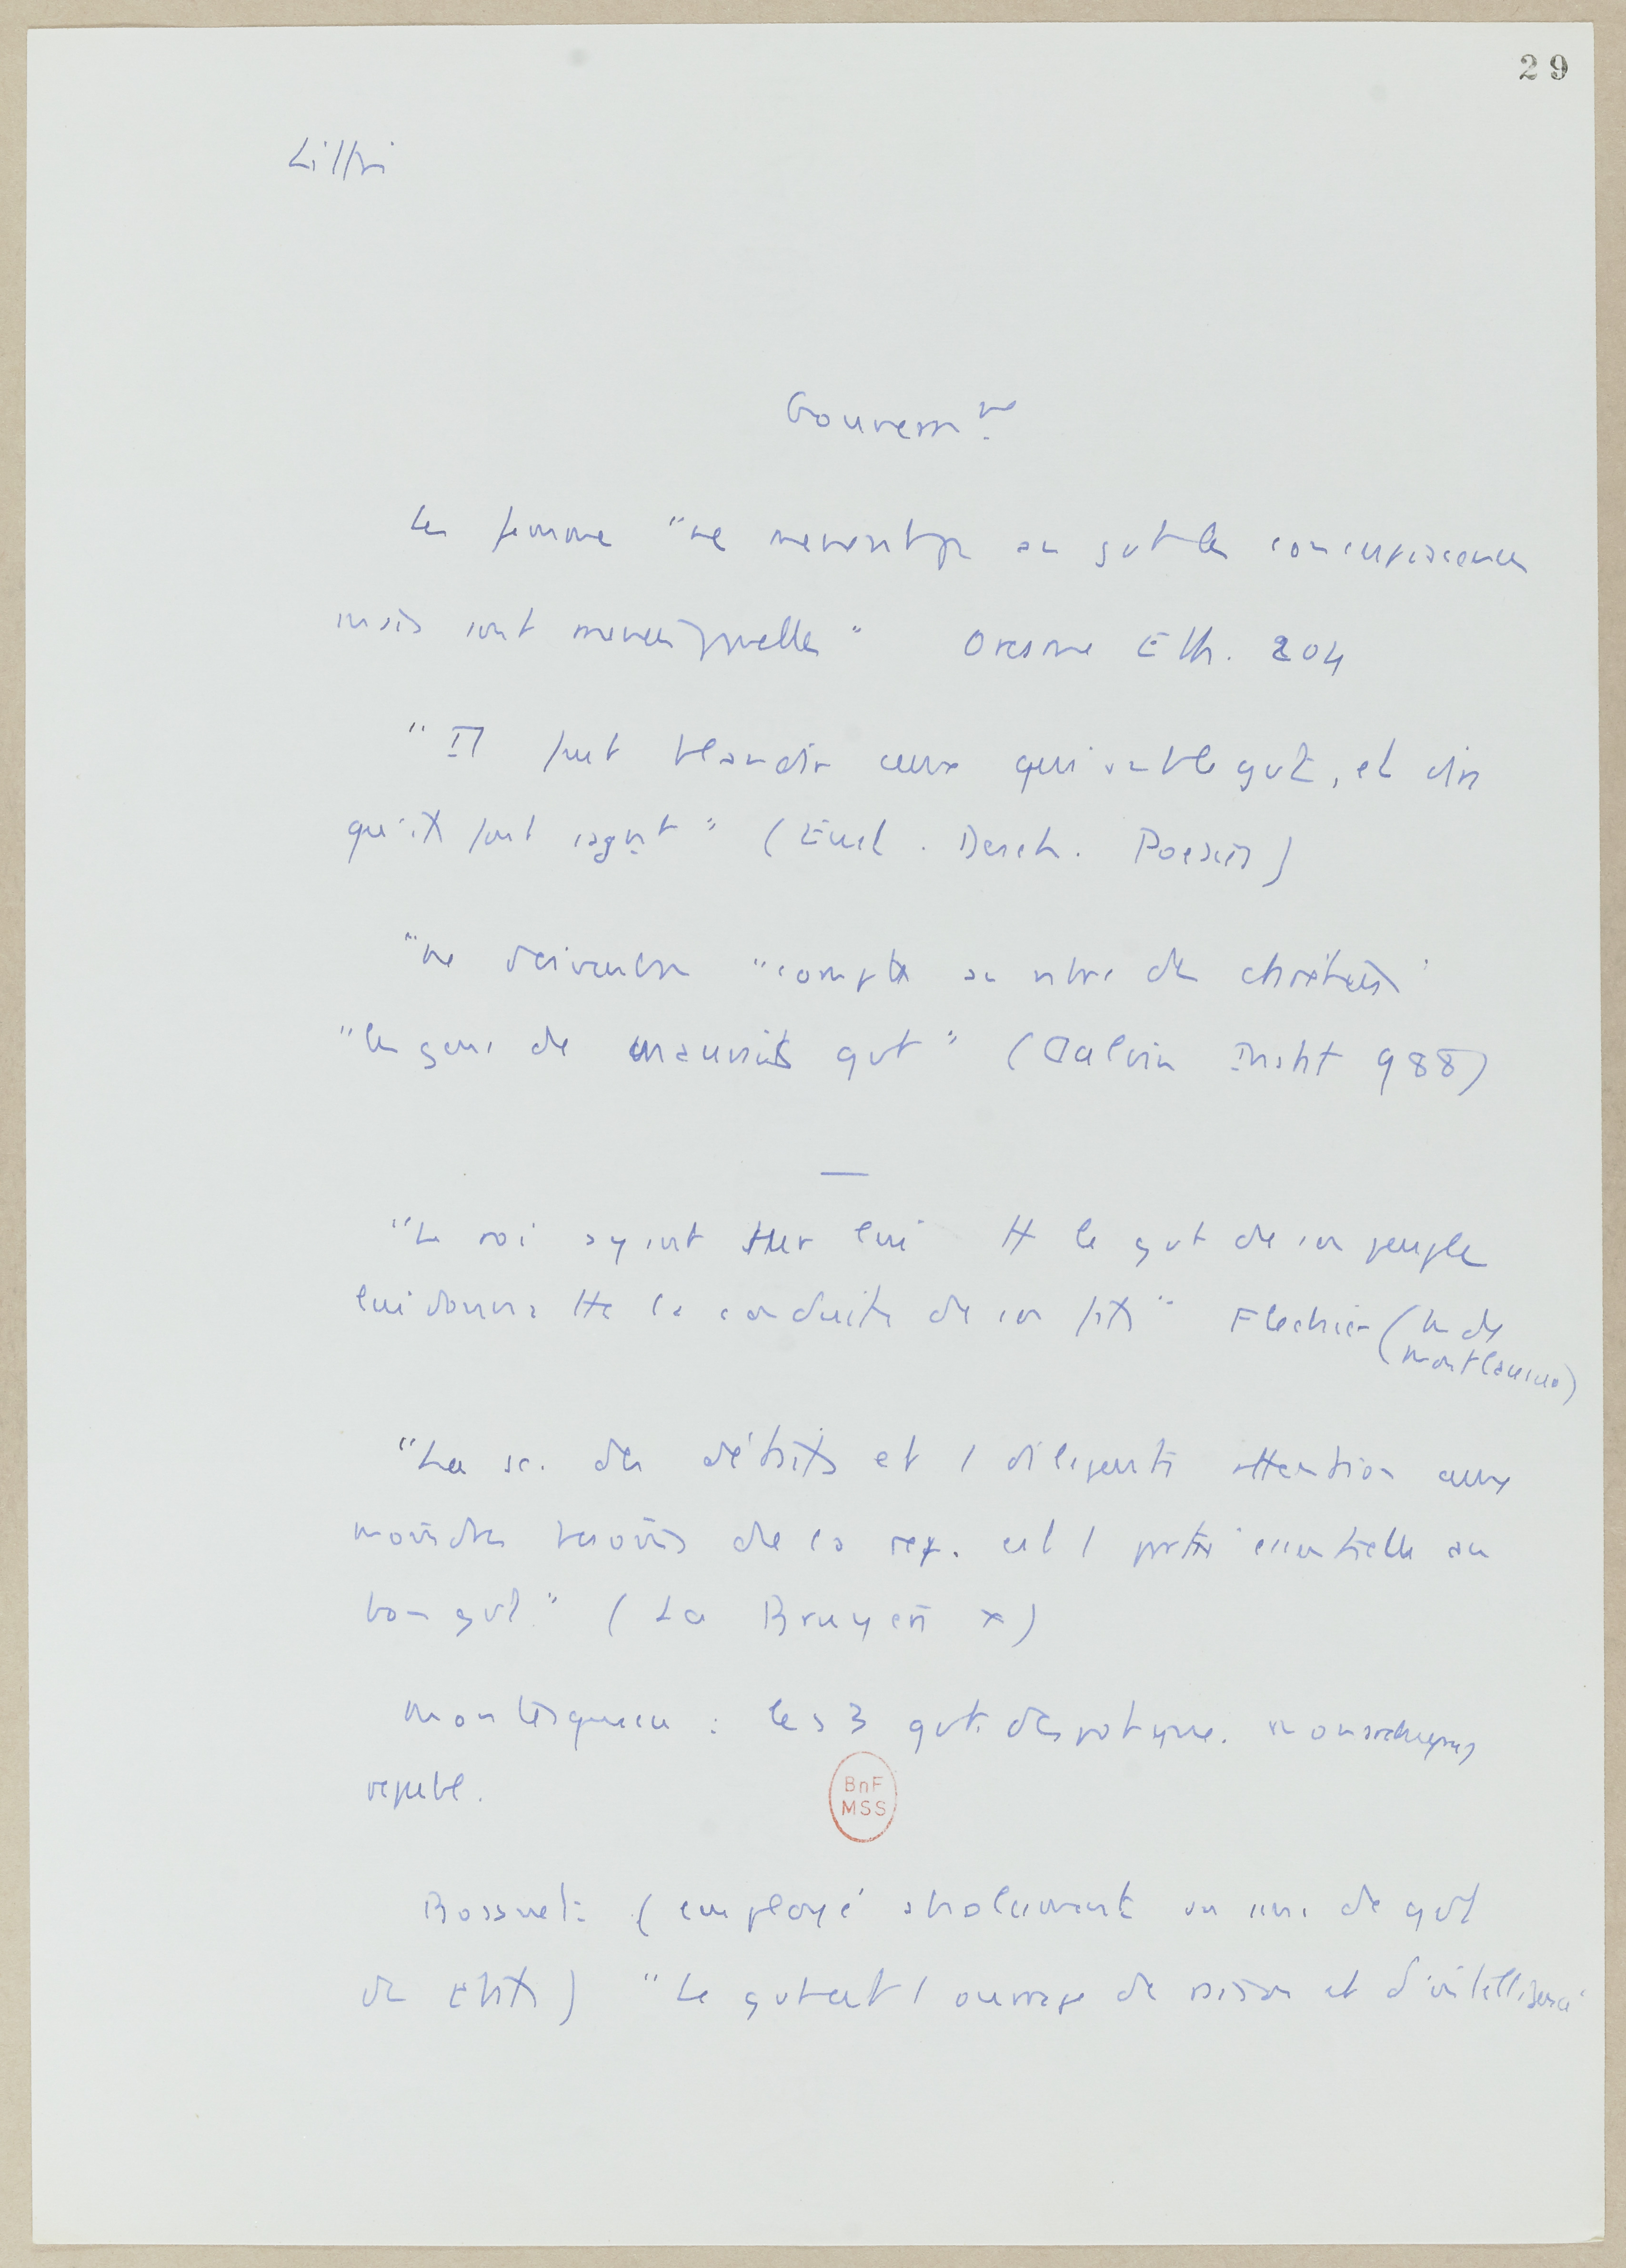 29
Littré
Gouvernᵗ
Les femmes "ne menent pas au gvt les concupiscences
mais sont menees par elles" Oresme Eth. 204
"Il faut blandir ceux qui ont le gvt, et dire
qu'ils sont sages" (Eust. Desch. Poesies)
"ne doivent être "comptés au nbre des chrétiens"
"les gens de mauvais gvt" (Calvin Instit 988)
—
"Le roi ayant sur lui tt le gvt de ses peuples
lui donna tte la conduite de son fils" Flechier (M de
Montausier)
"La sc. des détails et 1 diligente attention aux
moindres besoins de la rep. est 1 partie essentielle au
bon gvt" (La Bruyère X)
Montesquieu : les 3 gvts despotique. monarchique,
republ.
BnF
MSS
Bossuet: (employé absolument au sens de gvt
des Etats) "Le gvt est 1 ouvrage de raison et d'intelligence"